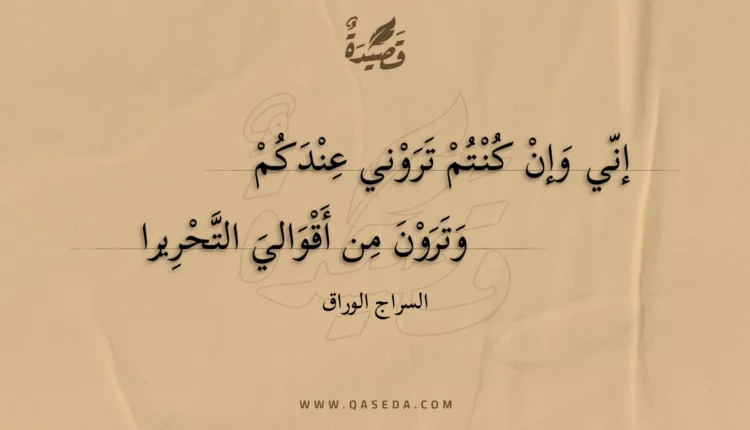 قَصِيدَةٌ
إنّي وَإنْ كُنْتُمْ تَرَوْني عِنْدَكُمْ
وَتَرَوْنَ مِن أَقْوَاليَ التَّحْرِيرا
السراج الوراق
WWW.QASEDA.COM